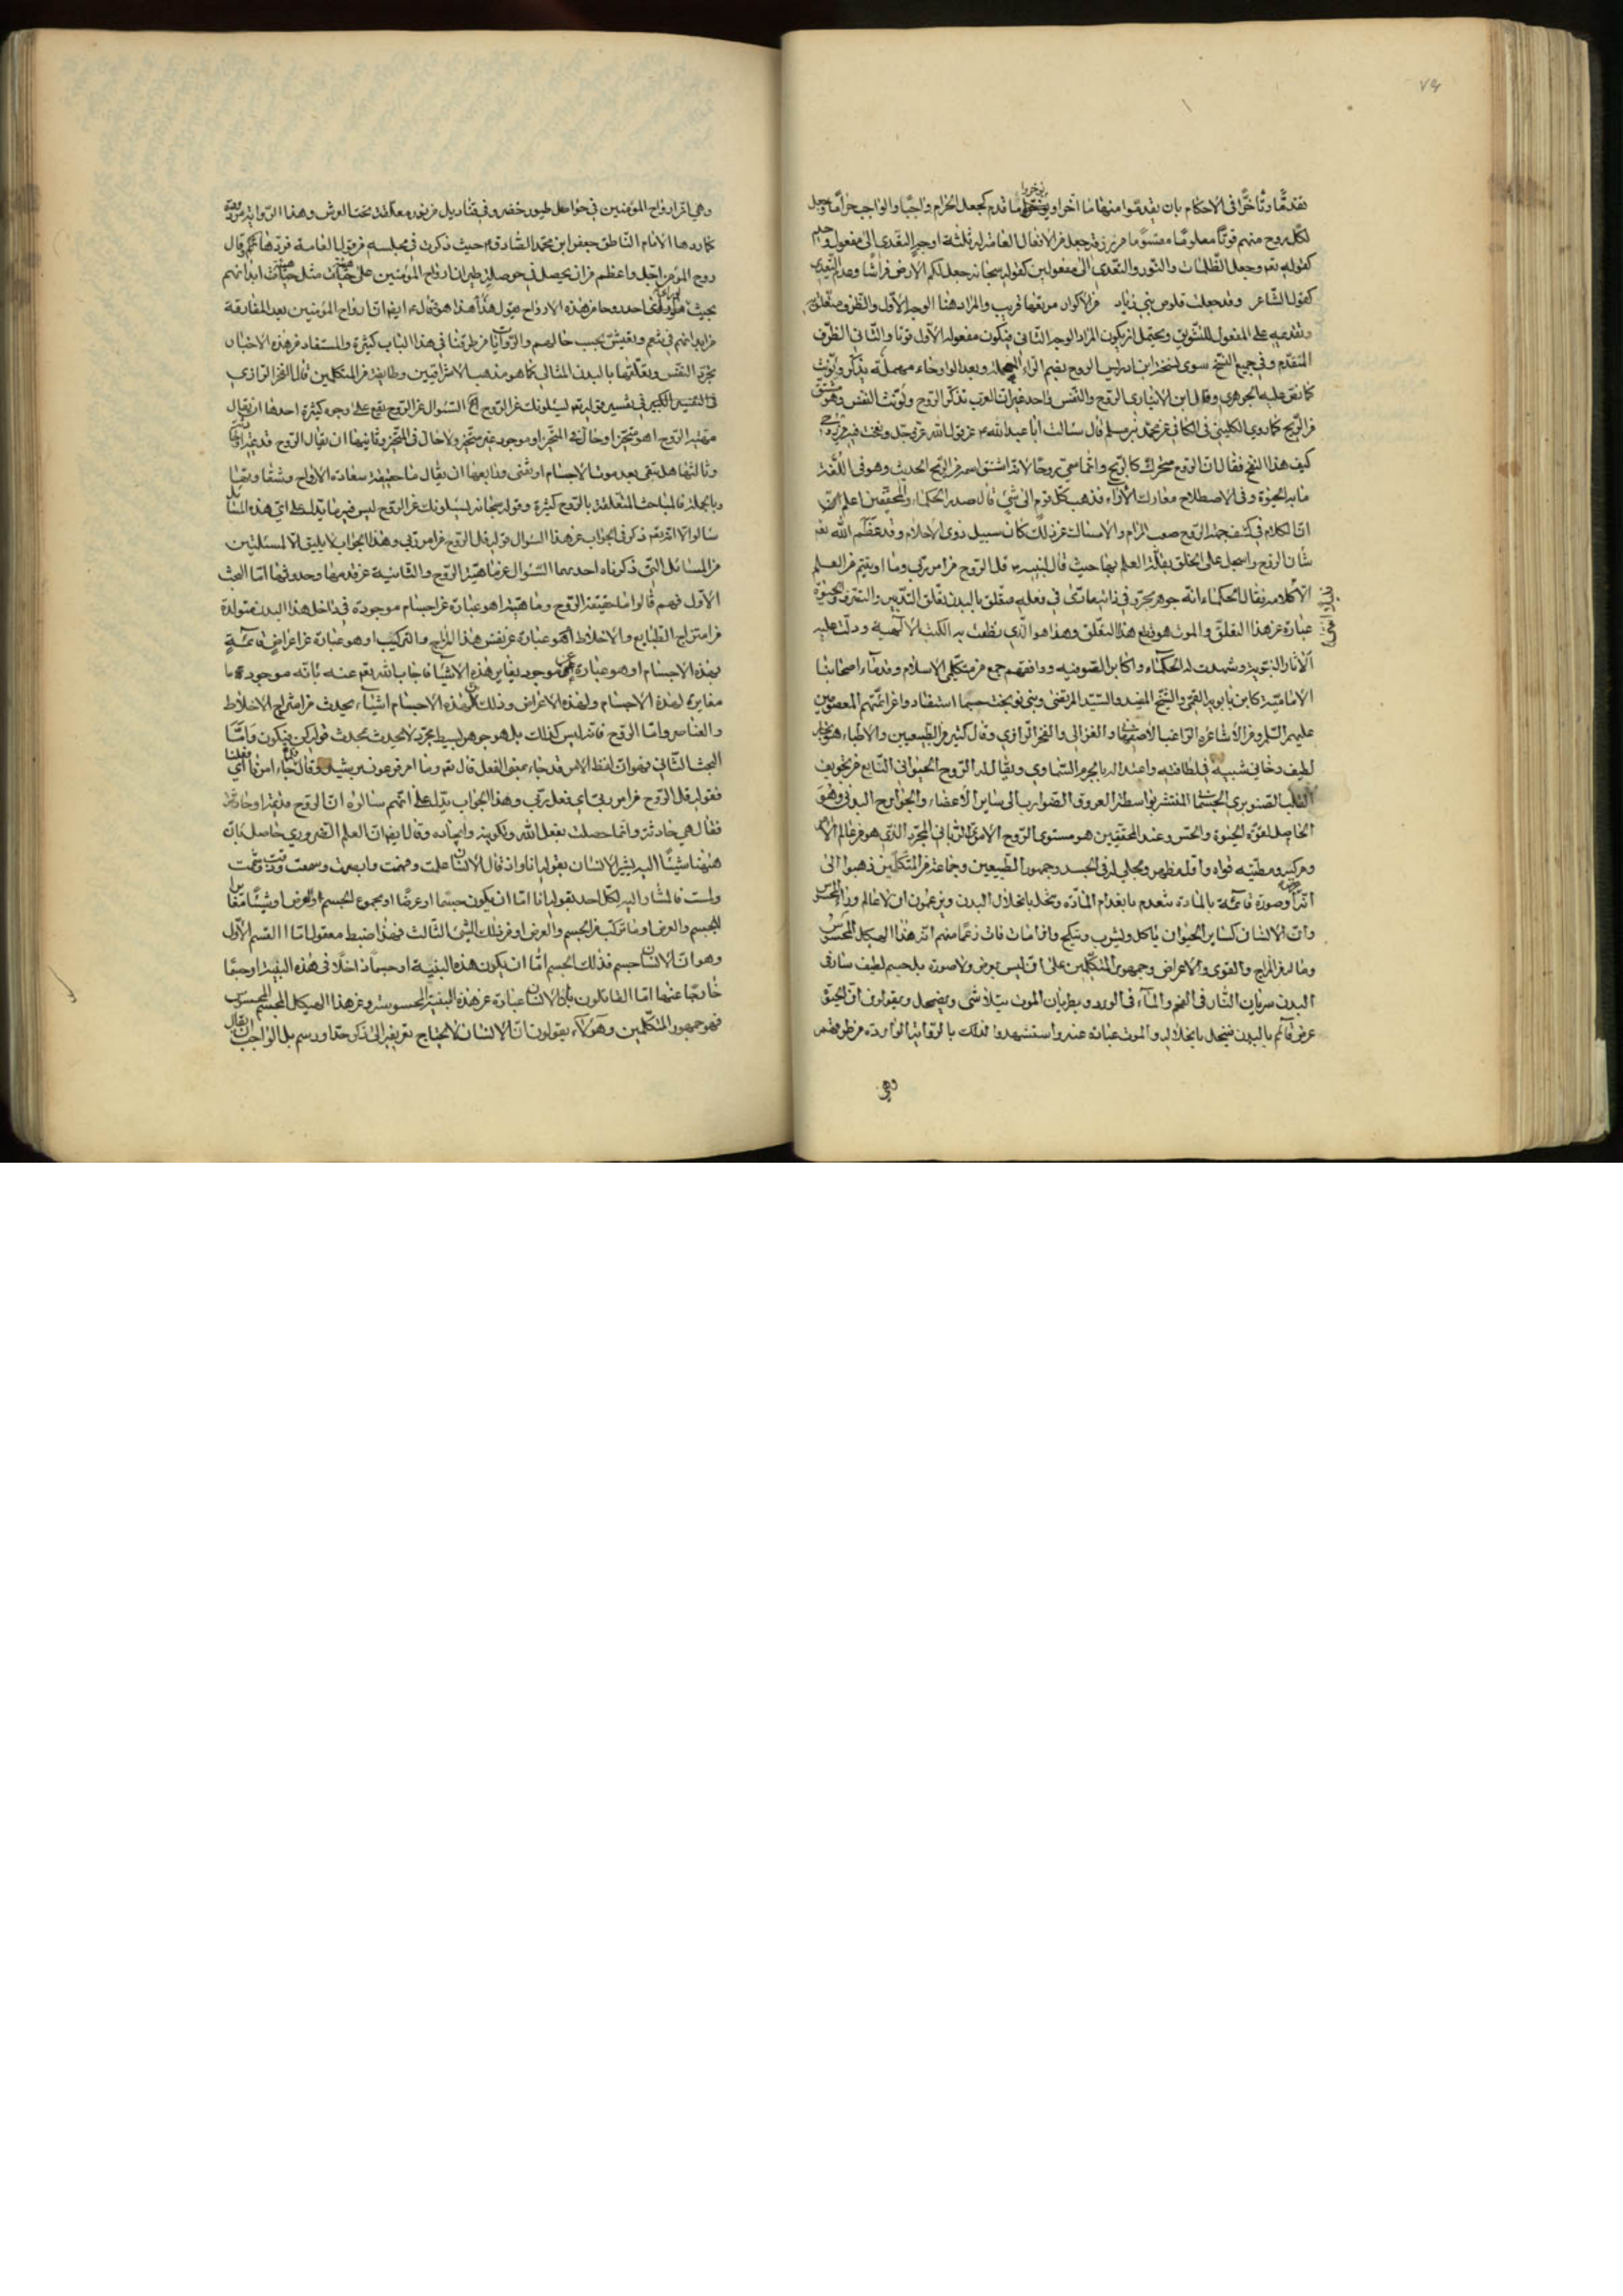 ٧٩
تقدّمًا وتأخّرًا في الاحكام بان يقدموا منها ما اخّر او يؤخروا ما قدم كجعل الحرام واجبًا والواجب حرامًا وجعل
لكل روح منهم قوتًا معلومًا مقسومًا من رزقه جعل من الافعال العامة له ثلثة اوجه التعدي الى مفعول واحد
كقوله تعم وجعل الظلمات والنور والتعدي الى مفعولين كقوله سبحانه جعل لكم الارض فراشًا وعدم التعدي
كقول الشاعر وقد جعلت قلوص بني زياد من الاكوار مرتعها قريب والمراد هنا الوجه الاول والظرف متعلق به
وتقديمه على المفعول للتشويق ويحتمل ان يكون المراد الوجه الثاني فيكون مفعوله الاول قوتًا والثاني الظرف
المتقدم وفي جميع النسخ سوى نسخة ابن ادريس الروح بضم الراء المهملة وبعد الواو حاء مهملة يذكر ويؤنث
كما نص عليه الجوهري وقال ابن الانباري الروح والنفس واحد غير ان العرب تذكر الروح وتؤنث النفس وهو مشتق
من الريح كما روى الكليني في الكافي عن محمد بن مسلم قال سالت ابا عبد الله ع عن قول الله عز وجل ونفخت فيه من روحي
كيف هذا النفخ فقال ان الروح متحرك كالريح وانما سمي روحًا لانه اشتق اسمه من الريح الحديث وهو في اللغة
ما به الحيوة وفي الاصطلاح معارك الآراء فذهب كل قوم الى شيء قال صدر الحكماء والمحققين اعلم
ان الكلام في كشف جهة الروح صعب المرام والامساك عن ذلك كان سبيل ذوي الاحلام وقد عظم الله تعم
شان الروح واسجل على الخلق بقلة العلم بها حيث قال لنبيه ص قل الروح من امر ربي وما اوتيتم من العلم
عبارة عن هذا التعلق والموت هو قطع هذا التعلق وهذا هو الذي نطقت به الكتب الالهية ودلت عليه
الآثار النبوية وشهدت له الحكماء واكابر الصوفية ووافقهم جمع من متكلمي الاسلام وقدماء اصحابنا
الامامية كابن بابويه القمي والشيخ المفيد والسيد المرتضى وبني نوبخت حسبما استفاد واعن ائمتهم المعصومين
عليهم السلم ومن الاشاعرة الراغب الاصفهاني والغزالي والفخر الرازي وقال كثير من الطبيعين والاطباء هو بخار
لطيف دخاني شبيه في لطافته واعتداله بالجرم السماوي ويقال له الروح الحيواني النابع من تجويف
القلب الصنوبري الجسماني المنتشر بواسطة العروق الضوارب الى ساير الاعضاء والجوارح البدني وهو
الحامل لقوة الحيوة والحس وعند المحققين هو مستوى الروح الامري الرباني المجرد الذي هو من عالم الامر
ومركبه ومطيته قواه واول مظهر ومجلى له في الجسد وجمهور الطبيعين وجماعة من المتكلمين ذهبوا الى
انه صورة قائمة بالمادة تنعدم بانعدام المادة وتنحل بانحلال البدن ويزعمون ان لا عالم وراء المحسوس
وان الانسان كساير الحيوان ياكل ويشرب وينكح واذا مات فات زعمًا منهم انه هذا الهيكل المحسوس
وما له من المزاج والقوى والاعراض وجمهور المتكلمين على انه ليس بعرض ولا صورة بل جسم لطيف سار في
البدن سريان النار في الفحم والماء في الورد وبطريان الموت يتلاشى ويضمحل ويقولون ان الحيوة
عرض قائم بالبدن فينحل بانحلاله والموت عبارة عنه واستشهدوا لذلك بالروايات الواردة من طرقهم
وهي
وهي ان ارواح المؤمنين في حواصل طيور خضر وفي قناديل من نور معلقة تحت العرش وهذا الرواية مردودة
كما ردها الامام الناطق جعفر ابن محمد الصادق ع حيث ذكرت في مجلسه من قول العامة فردها ثم قال
روح المؤمن اجل واعظم من ان يحصل في حوصلة طير ان ارواح المؤمنين على هيئات مثل هيئات ابدانهم
بحيث لو راى احد روحا من هذه الارواح يقول هذا هذا هو وقال ع ايضا ان ارواح المؤمنين بعد المفارقة
من ابدانهم في نعم وتعيش بحسب حالهم والروايات من طرقنا في هذا الباب كثيرة والمستفاد من هذه الاخبار
تجرد النفس وتعلقها بالبدن المثالي كما هو مذهب الاشراقيين وطايفة من المتكلمين قال الفخر الرازي
في التفسير الكبير في تفسير قوله تعم يسئلونك عن الروح السؤال عن الروح يقع على وجوه كثيرة احدها ان يقال
مهية الروح اهو متحيز او حال في المتحيز او موجود غير متحيز ولا حال في المتحيز وثانيها ان يقال الروح قديمة او حادثة
وثالثها هل تبقى بعد موت الاجسام او تفنى ورابعها ان يقال ما حقيقة سعادة الارواح وشقاوتها
وبالجملة فالمباحث المتعلقة بالروح كثيرة وقوله سبحانه يسئلونك عن الروح ليس فيه ما يدل على اي هذه المسائل
سالوا الا انه تعم ذكر في الجواب عن هذا السؤال قوله قل الروح من امر ربي وهذا الجواب لا يليق الا لمسئلتين
من المسائل التي ذكرناه احديهما السؤال عن ماهية الروح والثانية عن قدمها وحدوثها اما البحث
الاول فهم قالوا ما حقيقة الروح وماهيته اهو عبارة عن اجسام موجودة في داخل هذا البدن متولدة
من امتزاج الطبايع والاخلاط اهو عبارة عن نفس هذا المزاج والتركيب او هو عبارة عن اعراض قائمة
بهذه الاجسام او هو عبارة عن موجود يغاير هذه الاشياء فاجاب الله تعم عنه بانه موجود
مغايرة لهذه الاجسام ولهذه الاعراض وذلك ان هذه الاجسام اشياء يحدث من امتزاج الاخلاط
والعناصر واما الروح فانه ليس كذلك بل هو جوهر بسيط مجرد لا يحدث يحدث قوله كن فيكون واما
البحث الثاني فهو ان لفظ الامر قد جاء بمعنى الفعل قال تعم وما امر فرعون برشيد وقال فلما جاء امرنا اي فعلنا
فقوله قل الروح من امر ربي اي فعل ربي وهذا الجواب يدل على انهم سالوه ان الروح قديمة او حادثة
فقال هي حادثة وانما حصلت بفعل الله وتكوينه وايجاده وقال ايضا ان العلم الضروري حاصل بان
هيهنا شيئًا اليه يشير الانسان بقوله انا واذ قال الانسان علمت وفهمت وابصرت وسمعت وذقت وشممت
ولمست فالمشار اليه لكل احد بقوله انا اما ان يكون جسمًا او عرضًا او مجموع الجسم او العرض او شيئًا مغايرا
للجسم والعرض او ما تركب من الجسم والعرض او من ذلك الشيء الثالث فهذا ضبط معقول اما القسم الاول
وهو ان الانسان جسم فذلك الجسم اما ان يكون هذه البنية او جسمًا داخلًا في هذه البنية او جسمًا
خارجًا عنها اما القائلون بان الانسان عبارة عن هذه البنية المحسوسة وعن هذا الهيكل المجسم المحسوس
فهو جمهور المتكلمين وهؤلاء يقولون ان الانسان لا يحتاج تعريفه الى ذكر حدّ او رسم بل الواجب ان يقال